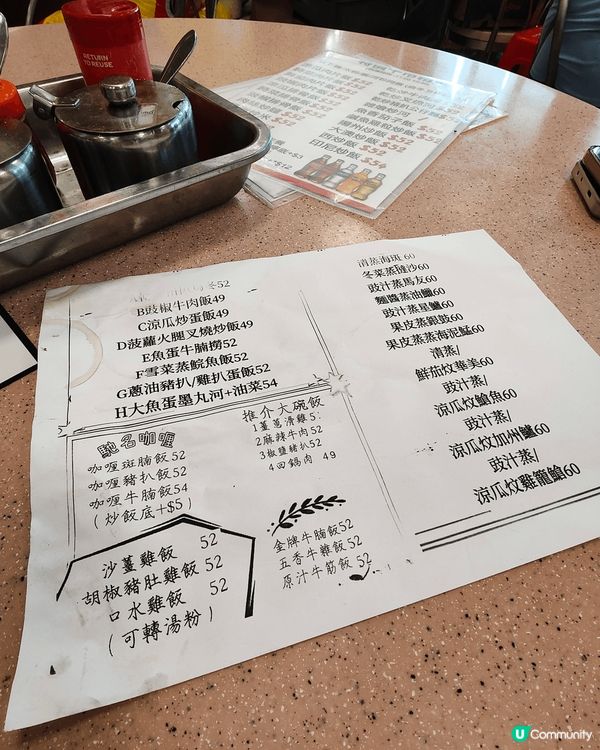 RETURN
TO REUSE
$52
$52
大澳炒飯 $52
西炒飯 $52
印尼炒飯 $54
52
B豉椒牛肉飯49
C涼瓜炒蛋飯49
D菠蘿火腿叉燒炒飯52
E魚蛋牛腩撈52
F雪菜蒸鯇魚飯52
G蔥油豬扒/雞扒蛋飯52
H大魚蛋墨丸河+油菜54
馳名咖喱
咖喱斑腩飯52
咖喱豬扒飯52
咖喱牛腩飯54
(炒飯底+$5)
推介大碗飯
1薑蔥滑雞5
2麻辣牛肉52
3椒鹽豬扒52
4回鍋肉 49
沙薑雞飯 52
胡椒豬肚雞飯 52
口水雞飯 52
(可轉湯粉)
金牌牛腩飯52
五香牛雜飯52
原汁牛筋飯52
清蒸海斑 60
冬菜蒸𩶘沙60
豉汁蒸馬友60
蒸油鱲60
豉汁蒸星鱲60
果皮蒸銀鼓60
果皮蒸蒸海泥鯭60
清蒸/
鮮茄炆華美60
豉汁蒸/
涼瓜炆鱠魚60
豉汁蒸/
涼瓜炆加州鱲60
豉汁蒸/
涼瓜炆雞籠鱠60
U Community